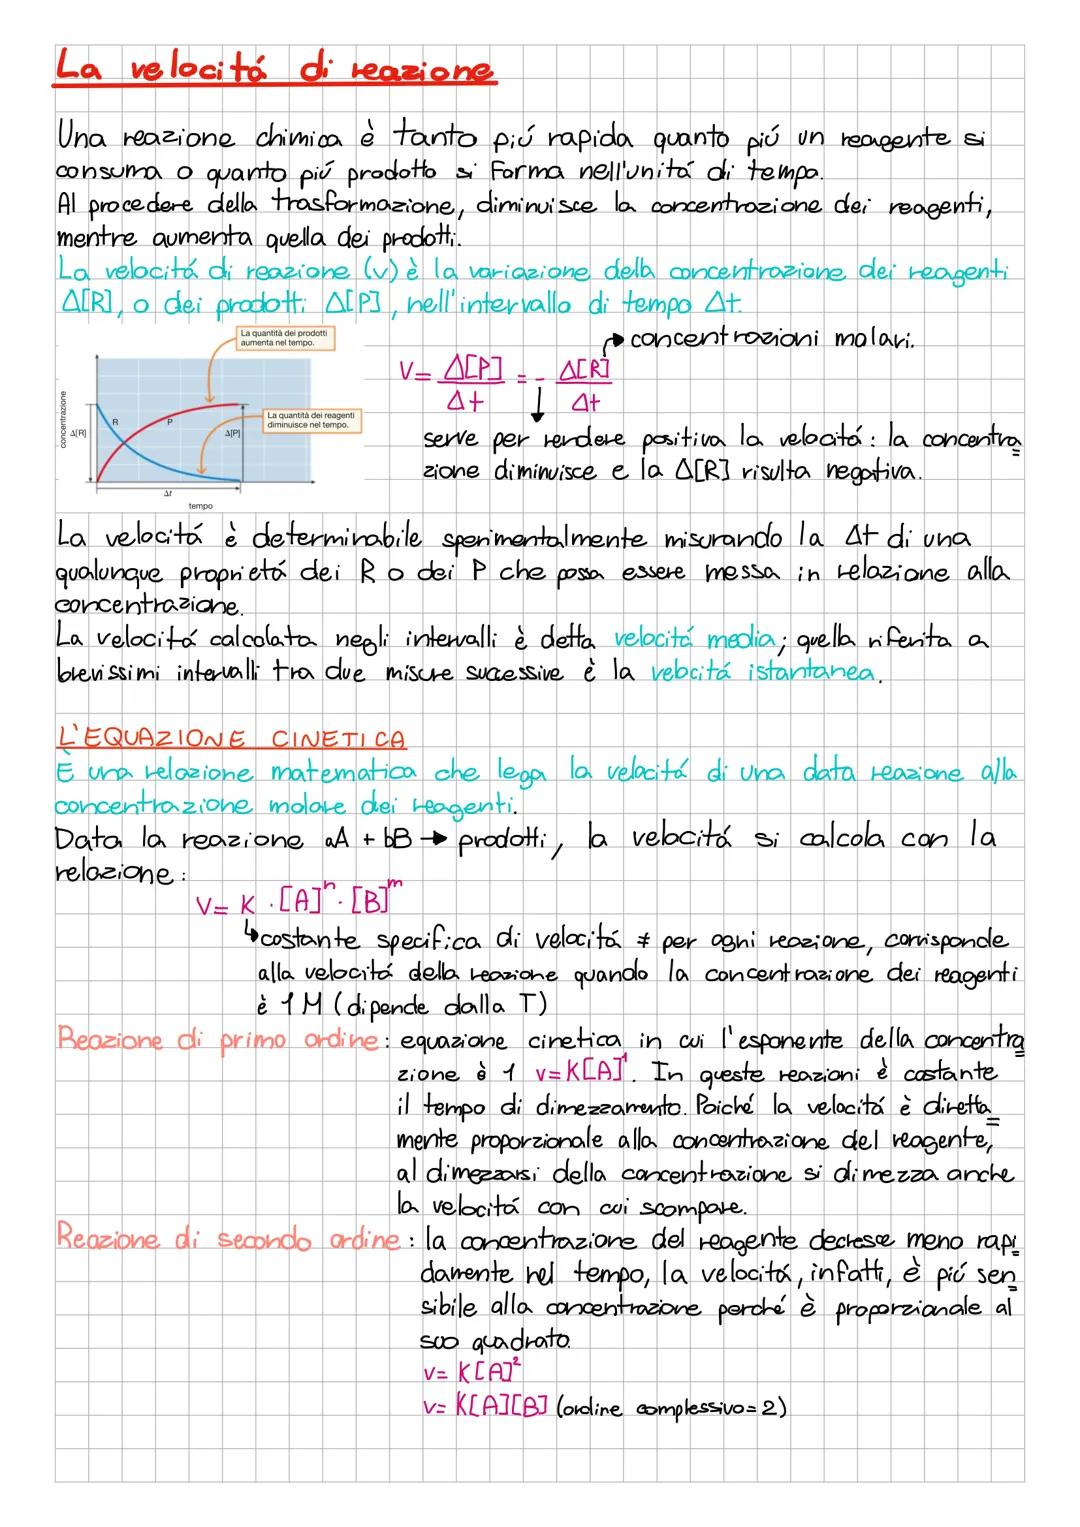 La velocitá di reazione
Una reazione chimica è tanto piú rapida quanto piú un reagente si
consuma o quanto piú prodotto si forma nell'unitá di tempo.
Al procedere della trasformazione, diminuisce la concentrazione dei reagenti,
mentre aumenta quella dei prodotti.
La velocitá di reazione (v) è la variazione della concentrazione dei reagenti
Δ[R], o dei prodotti Δ[P], nell'intervallo di tempo Δt.
La quantità dei prodotti
aumenta nel tempo.
La quantità dei reagenti
diminuisce nel tempo.
concentrazione
Δ[R]
R
P
Δ[P]
Δt
tempo
→ concentrazioni molari.
V = Δ[P]/Δt = - Δ[R]/Δt
serve per rendere positiva la velocitá: la concentra
zione diminuisce e la Δ[R] risulta negativa.
La velocitá è determinabile sperimentalmente misurando la Δt di una
qualunque proprietá dei R o dei P che possa essere messa in relazione alla
concentrazione.
La velocitá calcolata negli intervalli è detta velocitá media; quella riferita a
brevissimi intervalli tra due misure successive è la velocitá istantanea.
L'EQUAZIONE CINETICA
È una relazione matematica che lega la velocitá di una data reazione alla
concentrazione molare dei reagenti.
Data la reazione aA + bB → prodotti, la velocitá si calcola con la
relazione:
V = K · [A]ⁿ · [B]ᵐ
↳ costante specifica di velocitá ≠ per ogni reazione, corrisponde
alla velocitá della reazione quando la concentrazione dei reagenti
è 1 M (dipende dalla T)
Reazione di primo ordine: equazione cinetica in cui l'esponente della concentra
zione è 1 v=K[A]¹. In queste reazioni è costante
il tempo di dimezzamento. Poiché la velocitá è diretta
mente proporzionale alla concentrazione del reagente,
al dimezzarsi della concentrazione si dimezza anche
la velocitá con cui scompare.
Reazione di secondo ordine: la concentrazione del reagente decresce meno rapi
damente nel tempo, la velocitá, infatti, è piú sen
sibile alla concentrazione perché è proporzionale al
suo quadrato.
v= K[A]²
v= K[A][B] (ordine complessivo=2)